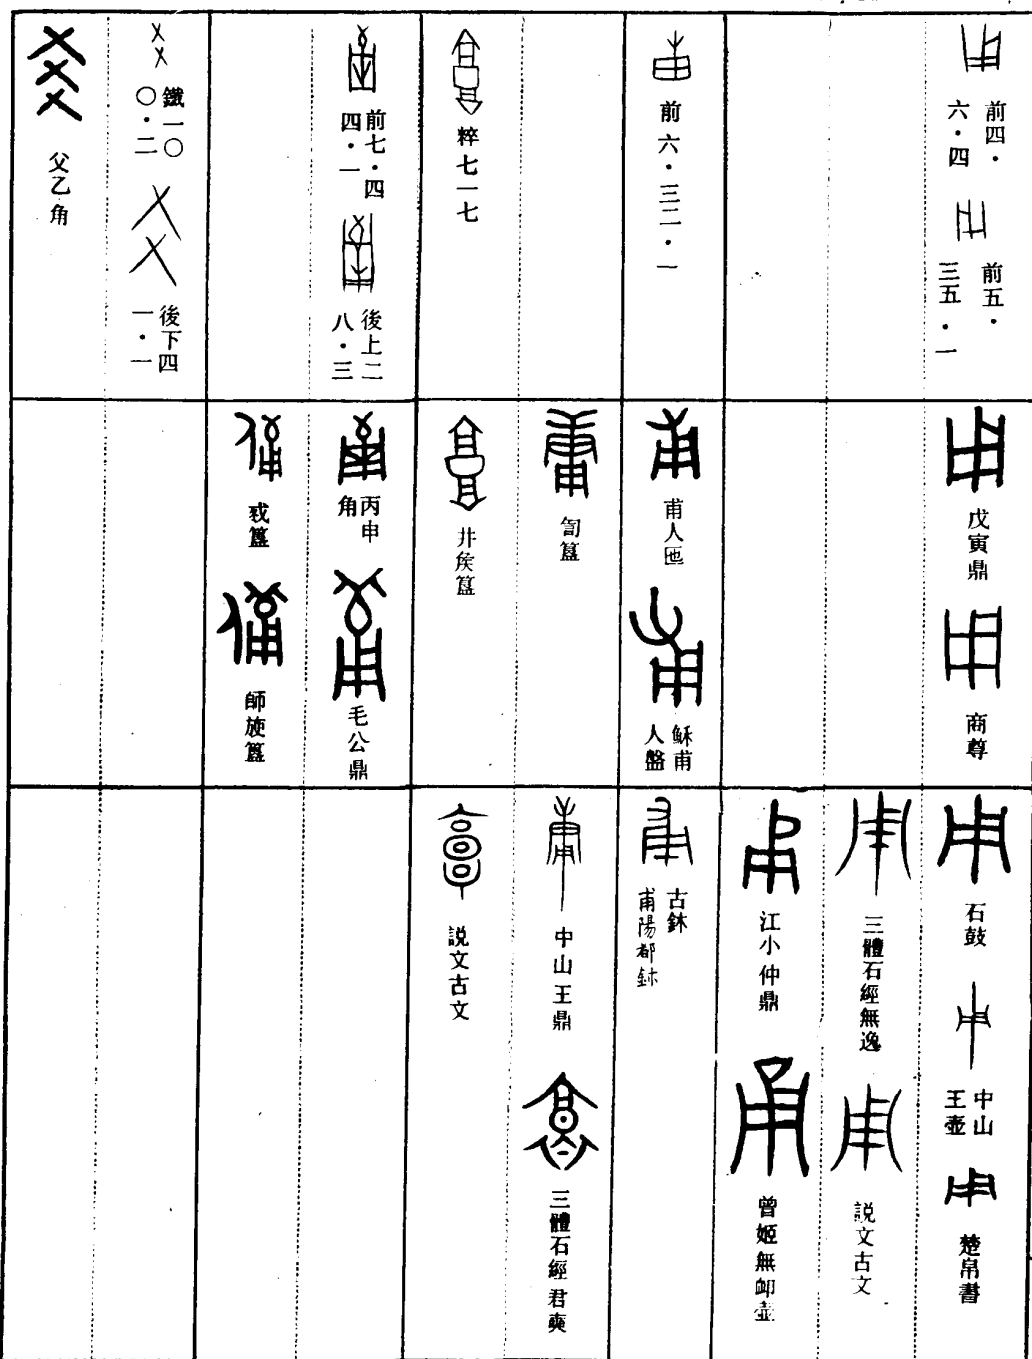 前四·
六·四
前五·
三五·一
前六·三二·一
粹七一七
前七·四
四·一
後上二
八·三
鐵一〇
〇·二
後下四
一·一
父乙角
戊寅鼎
商尊
甫人匜
穌甫
人盤
訇簋
井侯簋
丙申
角
毛公鼎
簋
師旋簋
石鼓
中山
王壺
楚帛書
三體石經無逸
説文古文
江小仲鼎
曾姬無卹壺
古鉨
甫陽都鉨
中山王鼎
三體石經君奭
説文古文